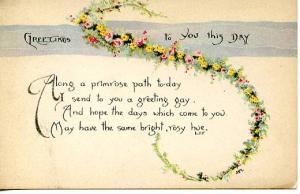 Greetings to You this Day
Along a primrose path to-day
I send to you a greeting gay.
And hope the days which come to you
May have the same bright, rosy hue.